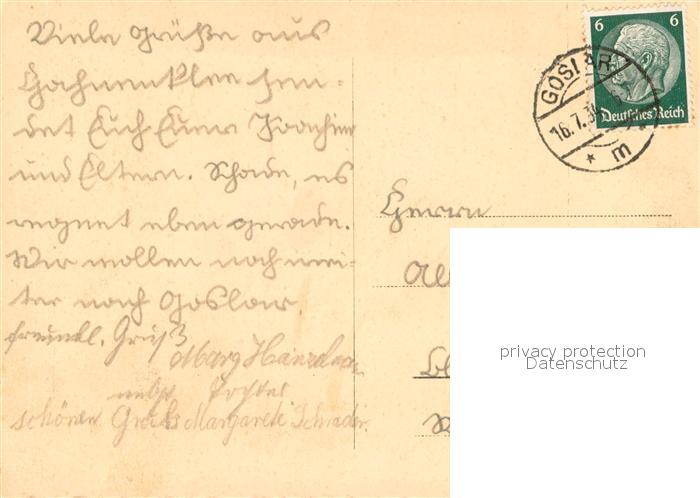 Viele Grüße aus
Hahnenklee sen-
det Euch Euer Joachim
und Eltern. Schade, es
regnet eben gerade.
Wir wollen noch wei-
ter nach Goslar.
freundl. Gruß
Marg
nebst Tochter
schönen Gruß Margarete Schrader.
6 6
Deutsches Reich
GOSLAR
16.7.3
* m
Herrn
privacy protection
Datenschutz